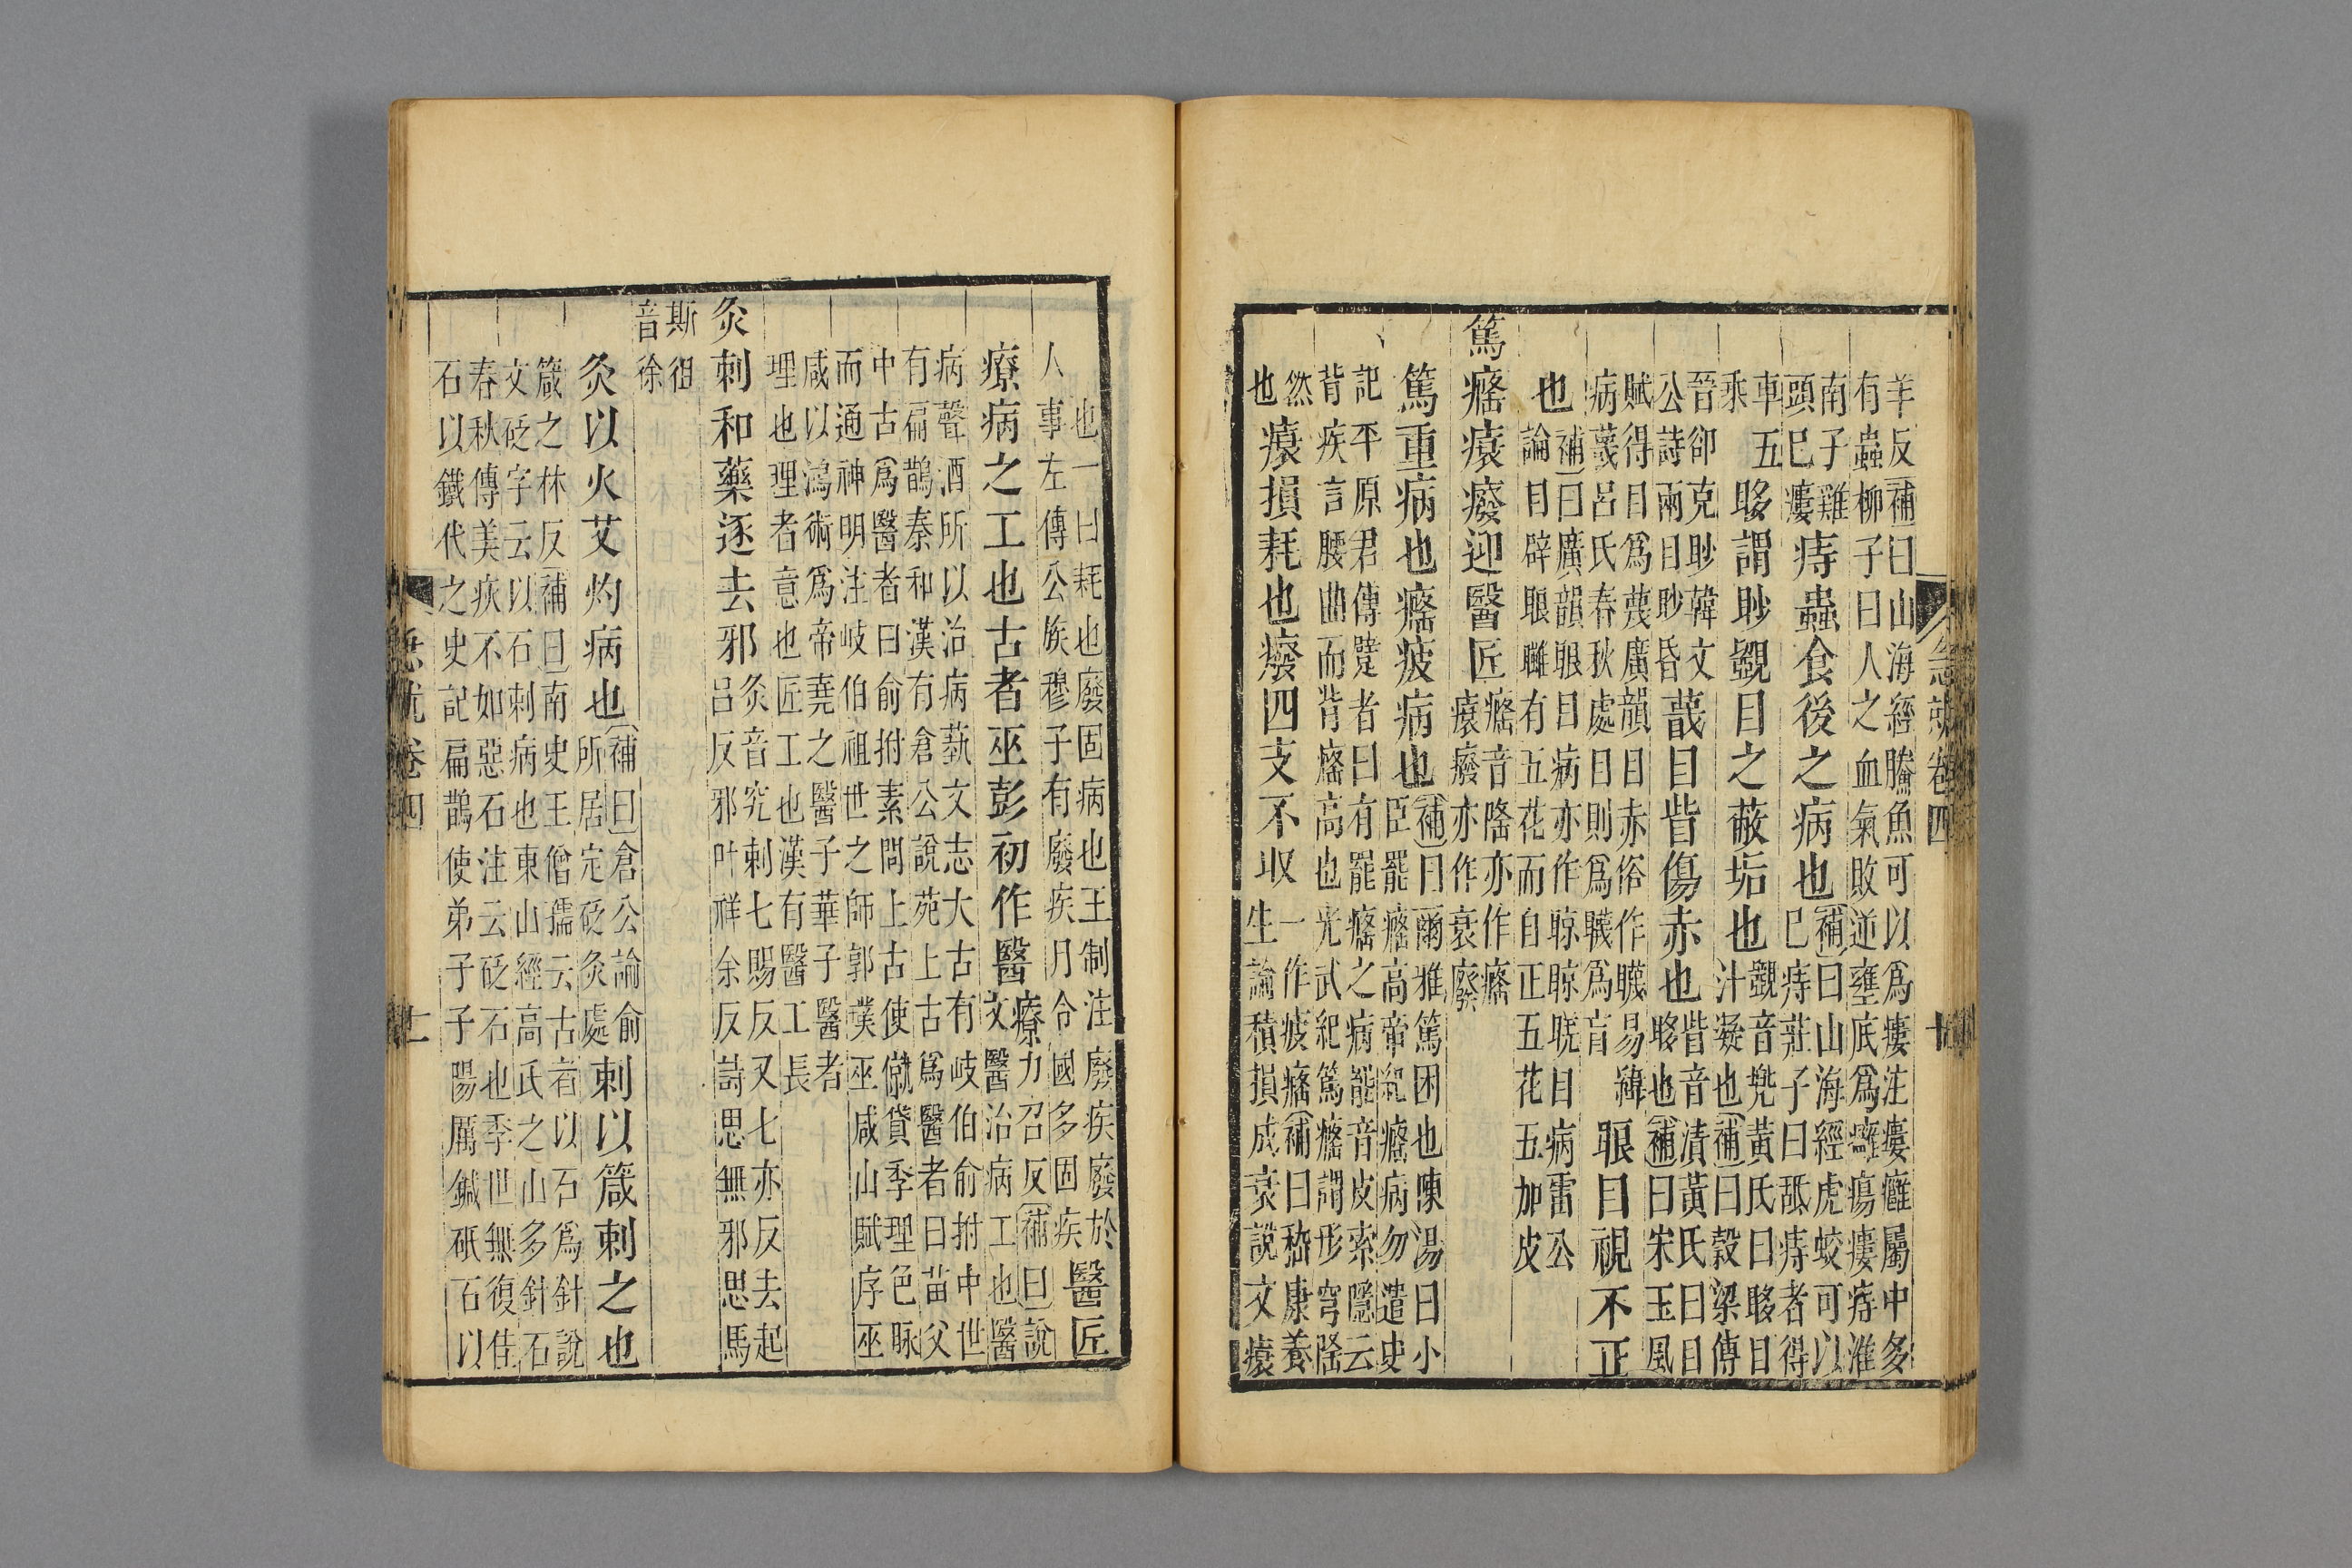 羊反補曰山海經騰魚可以爲瘻注瘻癰屬中多
有蟲柳子曰人之血氣敗逆壅底爲癰瘍瘻痔淮
南子雞
頭已瘻
痔蟲食後之病也
補曰山海經虎蛟可以
已痔莊子曰舐痔者得
車五
乘
眵謂眇覩目之蔽垢也
覩音兜黃氏曰眵目
汁凝也補曰穀梁傳
晉郤克眇韓文
公詩兩目眇昏
蔑目眥傷赤也
眥音漬黃氏曰目
眵也補曰宋玉風
賦得目爲蔑廣韻目赤俗作瞡易緯
病蔑呂氏春秋處目則爲䁾爲盲
眼目視不正
也
補曰廣韻眼目病亦作䀶䀶晄目病雷公
論目辟眼䧹有五花而自正五花五加皮
篤癃㾮癈迎醫匠
癃音隆亦作㾮
㾮癈亦作衰廢
篤重病也癃疲病也
補曰爾雅篤困也陳湯曰小
臣罷癃高帝紀癃病勿遣史
記平原君傳躄者曰有罷癃之病罷音皮索隱云
背疾言腰曲而背癃高也光武紀篤癃謂形穹隆
然
也
㾮損耗也癈四支不收
一作疲癃補曰嵇康養
生論積損成衰說文㾮
也一曰耗也廢固病也王制注廢疾廢於
人事左傳公族穆子有廢疾月令國多固疾
醫匠
療病之工也古者巫彭初作醫
療力召反補曰說
文醫治病工也醫
病聲酒所以治病藝文志大古有岐伯俞拊中世
有扁鵲秦和漢有倉公說苑上古爲醫者曰苗父
中古爲醫者曰俞拊素問上古使僦貸季理色脉
而通神明注岐伯祖世之師郭璞巫咸山賦序巫
咸以鴻術爲帝堯之醫子華子醫者
理也理者意也匠工也漢有醫工長
灸刺和藥逐去邪
灸音究刺七賜反又七亦反去起
呂反邪叶祥余反詩思無邪思馬
斯徂
音徐
灸以火艾灼病也
補曰倉公論俞
所居定砭灸處
刺以箴刺之也
箴之林反補曰南史王僧孺云古者以石爲針說
文砭字云以石刺病也東山經高氏之山多針石
春秋傳美疢不如惡石注云砭石也季世無復佳
石以鐵代之史記扁鵲使弟子子陽厲鍼砥石以